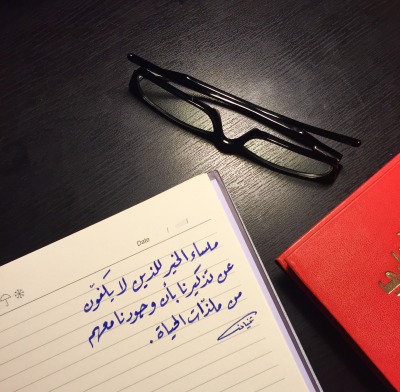 Date
مساء الخير للذين لا يكفّون
عن تذكيرنا بأن وجودنا معهم
من ملذّات الحياة.